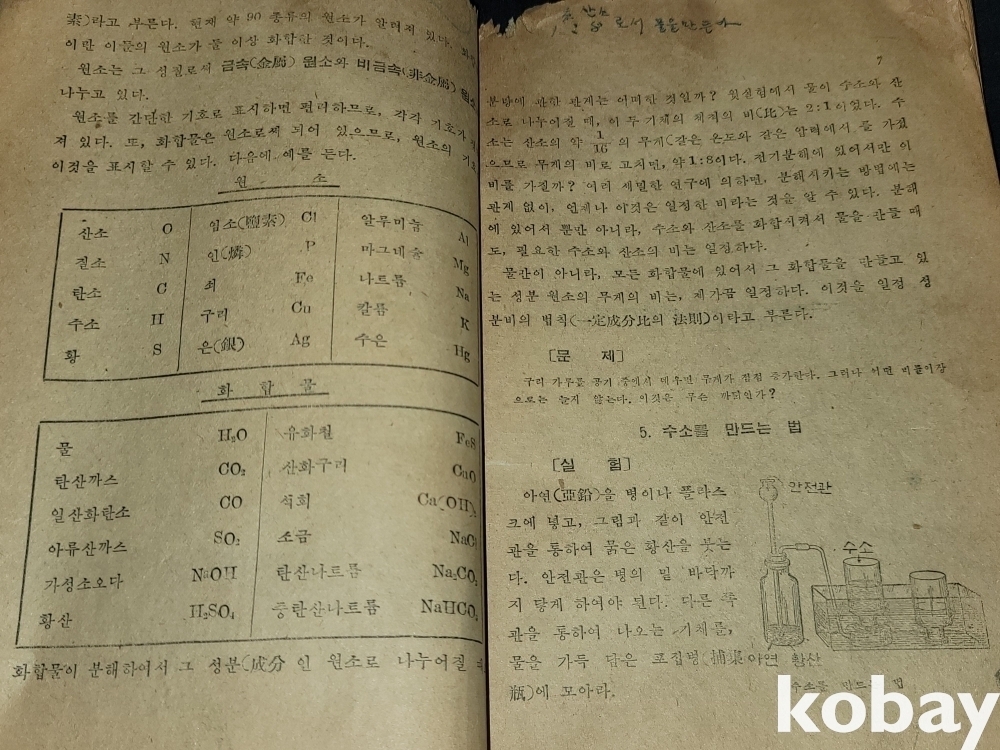 素)라고 부른다. 현재 약 90 종류의 원소가 알려져 있다.
이란 이들의 원소가 둘 이상 화합한 것이다.
원소는 그 성질로써 금속(金屬) 원소와 비금속(非金屬) 원소
나누고 있다.
원소를 간단한 기호로 표시하면 편리하므로, 각각 기호가
져 있다. 또, 화합물은 원소로써 되어 있으므로, 원소의
이것을 표시할 수 있다. 다음에 예를 든다.
원 소
산소 O 염소(鹽素) Cl 알루미늄 Al
질소 N 인(燐) P 마그네슘 Mg
탄소 C 쇠 Fe 나트륨 Na
수소 H 구리 Cu 칼륨 K
황 S 은(銀) Ag 수은 Hg
화 합 물
물 H₂O 유화철 FeS
탄산까스 CO₂ 산화구리 CuO
일산화탄소 CO 석회 Ca(OH)₂
아류산까스 SO₂ 소금 NaCl
가성소오다 NaOH 탄산나트륨 Na₂CO₃
황산 H₂SO₄ 중탄산나트륨 NaHCO₃
화합물이 분해하여서 그 성분(成分 인 원소로 나누어질
로서 물을만든다
7
분량에 관한 관계는 어떠한 것일까? 윗실험에서 물이 수소와 산
소로 나누어질 때, 이 두 기체의 체적의 비(比)는 2:1이었다. 수
소는 산소의 약 1/16 의 무게(같은 온도와 같은 압력에서 를 가졌
으므로 무게의 비로 고치면, 약 1:8이다. 전기분해에 있어서만 이
비를 가질까? 여러 세밀한 연구에 의하면, 분해시키는 방법에는
관계 없이, 언제나 이것은 일정한 비라는 것을 알 수 있다. 분해
에 있어서 뿐만 아니라, 수소와 산소를 화합시켜서 물을 만들 때
도, 필요한 수소와 산소의 비는 일정하다.
물만이 아니라, 모든 화합물에 있어서 그 화합물을 만들고 있
는 성분 원소의 무게의 비는, 제가끔 일정하다. 이것을 일정 성
분비의 법칙(一定成分比의 法則)이라고 부른다.
[문 제]
구리 가루를 공기 중에서 태우면 무게가 점점 증가한다. 그러나 어떤
으로는 늘지 않는다. 이것은 무슨 까닭인가?
5. 수소를 만드는 법
[실 험]
아연(亞鉛)을 병이나 플라스
크에 넣고, 그림과 같이 안전
관을 통하여 묽은 황산을 붓는
다. 안전관은 병의 밑 바닥까
지 닿게 하여야 된다. 다른 쪽
관을 통하여 나오는 기체를,
물을 가득 담은 포집병(捕集
瓶)에 모아라.
안전관
수소
아연 황산
수소를 만드는 법
kobay